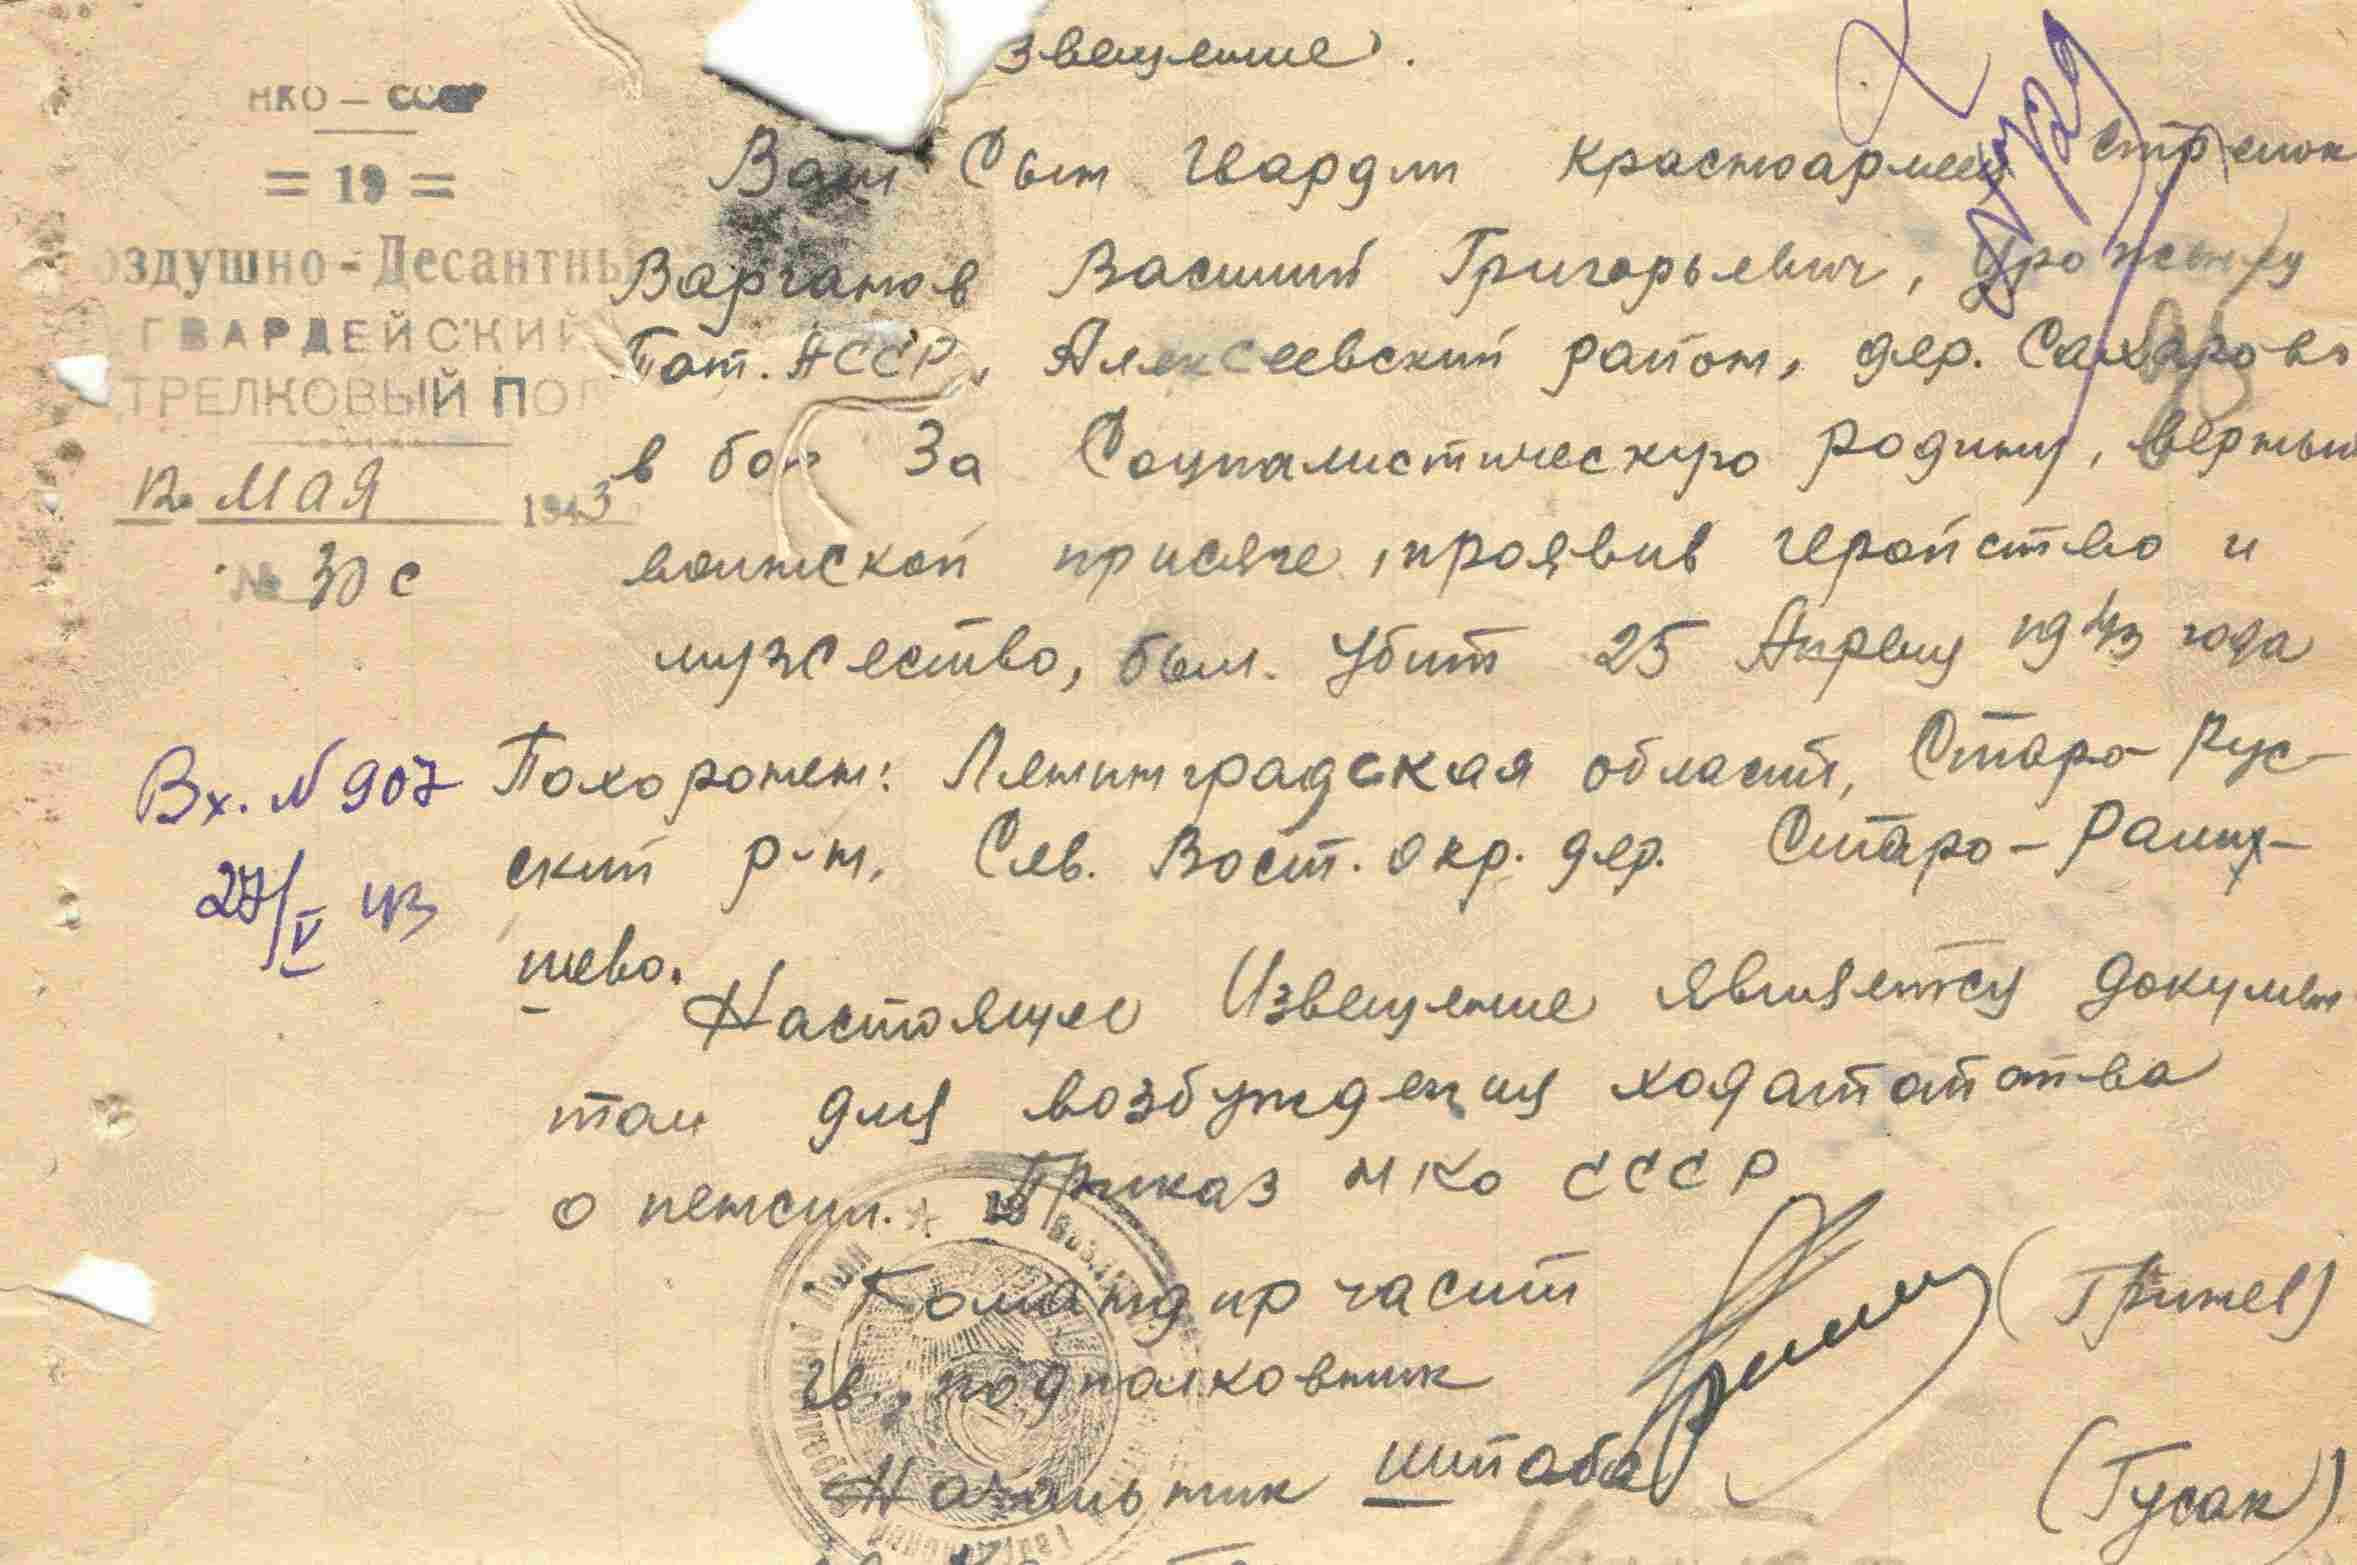 звещение.
НКО – СССР
= 19 =
оздушно-Десантны
ГВАРДЕЙСКИЙ
ТРЕЛКОВЫЙ ПОЛ
12 Мая 1943
№ 30 с
Ваш Сын Гвардии Красноармеец Стрелок
Варганов Василий Григорьевич,
Тат. АССР, Алексеевский район, дер. Сахаровк
в бою За Социалистическую родину, верный
воинской присяге, проявив геройство и
мужество, был. Убит 25 Апреля 1943 года
Вх. N 907
27/V 43
Похоронен: Ленинградская область, Старо Рус-
ский р-н, Сев. Вост. окр. дер. Старо-Раму-
шево.
Настоящее Извещение является докумен
том для возбуждения ходатайства
о пенсии. Приказ НКО СССР
Командир части
гв. подполковник (Гринев)
Начальник штаба (Гусак)